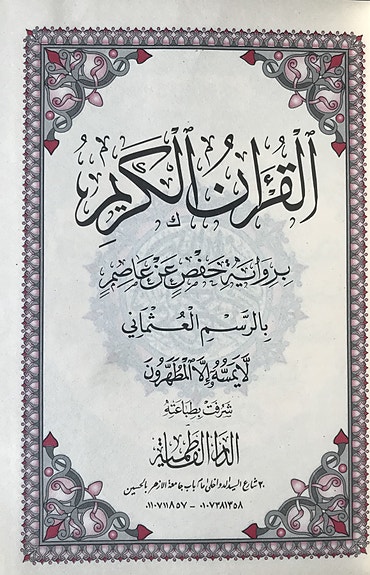 ٱلْقُرْءَانُ ٱلْكَرِيمِ
بِرِوَايَةِ حَفْصٍ عَنْ عَاصِمٍ
بِالرَّسْمِ الْعُثْمَانِي
لَّا يَمَسُّهُۥٓ إِلَّا ٱلْمُطَهَّرُونَ
شَرُفَتْ بِطِبَاعَتِهِ
الدار الفاطمية
٢٠ شارع السيد الدواخلى أمام باب جامعة الأزهر بالحسين
٠١٠٧٣٨١٣٥٨ - ٠١١٠٧١١٨٥٧